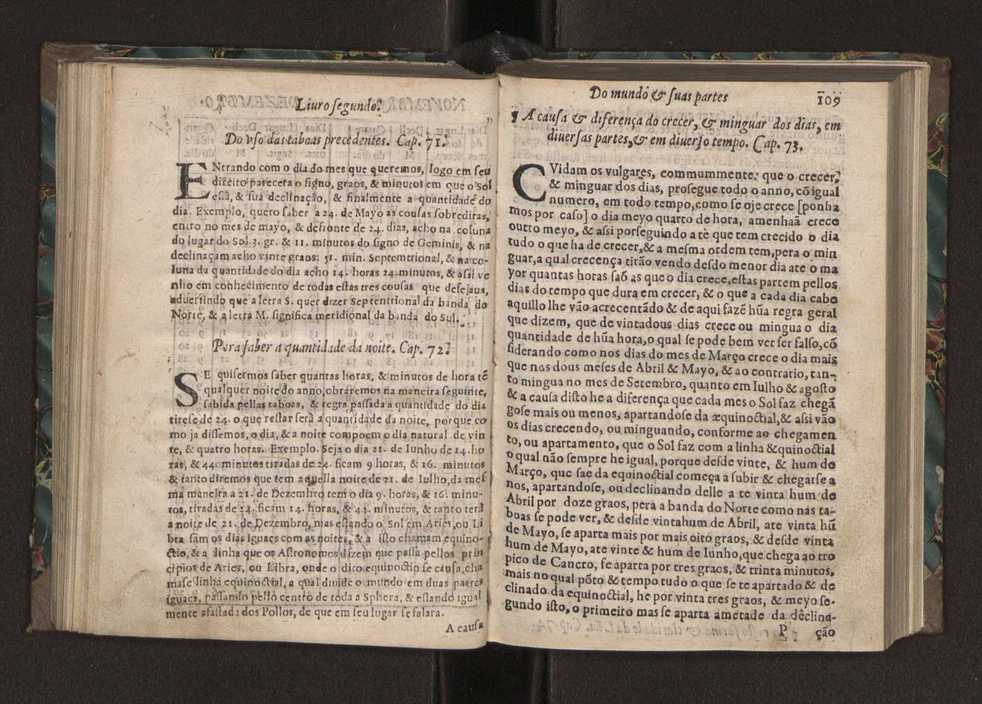 Liuro segundo.
Do vso das taboas precedentes. Cap. 71.
ENtrando com o dia do mes que queremos, logo em seu
direito parecera o signo, graos, & minutos em que o Sol
està, & sua declinação, & finalmente a quantidade do
dia. Exemplo, quero saber a 24. de Mayo as cousas sobreditas,
entro no mes de mayo, & defronte de 24. dias, acho na coluna
do lugar do Sol 3. gr. & 11. minutos do signo de Geminis, & na
declinaçam acho vinte graos: 51. min. Septemtrional, & na co-
luna da quantidade do dia acho 14. horas 24 minutos, & assi ve
nho em conhecimento de todas estas tres cousas que desejaua,
aduertindo que a letra S. quer dizer Septentrional da banda do
Norte, & a letra M. significa meridional da banda do Sul.
Pera saber a quantidade da noite. Cap. 72.
SE quisermos saber quantas horas, & minutos de hora tẽ
qualquer noite do anno, obraremos na maneira seguinte,
sabida pellas taboas, & regra passada a quantidade do dia
tirese de 24. o que restar serà a quantidade da noite, porque co
mo ja dissemos, o dia, & a noite compoem o dia natural de vin
te, & quatro horas. Exemplo. Seja o dia 21. de Iunho de 14. ho
ras, & 44. minutos tiradas de 24. ficam 9 horas, & 16. minutos
& tanto diremos que tem aquella noite de 21. de Iulho, da mes
ma maneira a 21. de Dezembro tem o dia 9. horas, & 16. minu-
tos, tiradas de 24. ficam 14. horas, & 44. minutos, & tanto terà
a noite de 21. de Dezembro, mas estando o Sol em Aries, ou Li
bra sam os dias iguaes com as noites, & a isto chamam equino-
ctio, & a linha que os Astronomos dizem que passa pellos prin
cipios de Aries, ou Libra, onde o dito equinoctio se causa, cha
mase linha equinoctial, a qual diuide o mundo em duas partes
iguaes, passando pello centro de toda a Sphera, & estando igual
mente afastada dos Pollos, de que em seu lugar se falara.
A causa
Do mundo & suas partes 109
¶ A causa & diferença do crecer, & minguar dos dias, em
diuersas partes, & em diuerso tempo. Cap. 73.
CVidam os vulgares, commummente: que o crecer,
& minguar dos dias, prosegue todo o anno, cõ igual
numero, em todo tempo, como se oje crece [ponha
mos por caso] o dia meyo quarto de hora, amenhaã crece
outro meyo, & assi porseguindo atè que tem crecido o dia
tudo o que ha de crecer, & a mesma ordem tem, pera o min
guar, a qual crecença tirão vendo desdo menor dia ate o ma
yor quantas horas saõ as que o dia crece, estas partem pellos
dias do tempo que dura em crecer, & o que a cada dia cabe
aquillo lhe vão acrecentãdo & de aqui fazẽ hũa regra geral
que dizem, que de vintadous dias crece ou mingua o dia
quantidade de hũa hora, o qual se pode bem ver ser falso, cõ
siderando como nos dias do mes de Março crece o dia mais
que nos dous meses de Abril & Mayo, & ao contrario, tan-
to mingua no mes de Setembro, quanto em Iulho & agosto
& a causa disto he a diferença que cada mes o Sol faz chegã
dose mais ou menos, apartandose da æquinoctial, & assi vão
os dias crecendo, ou minguando, conforme ao chegamen
to, ou apartamento, que o Sol faz com a linha &quinoctial
o qual não sempre he igual, porque desde vinte, & hum de
Março, que sae da equinoctial começa a subir & chegarse a
nos, apartandose, ou declinando delle a te vinta hum de
Abril por doze graos, pera a banda do Norte como nas ta-
boas se pode ver, & desde vintahum de Abril, ate vinta hũ
de Mayo, se aparta mais por mais oito graos, & desde vinta
hum de Mayo, ate vinte & hum de Iunho, que chega ao tro
pico de Cancro, se aparta por tres graos, & trinta minutos,
mais no qual põto & tempo tudo o que se te apartado & de
clinado da equinoctial, he por vinta tres graos, & meyo se-
gundo isto, o primeiro mas se aparta ametade da dèclina-
P ção